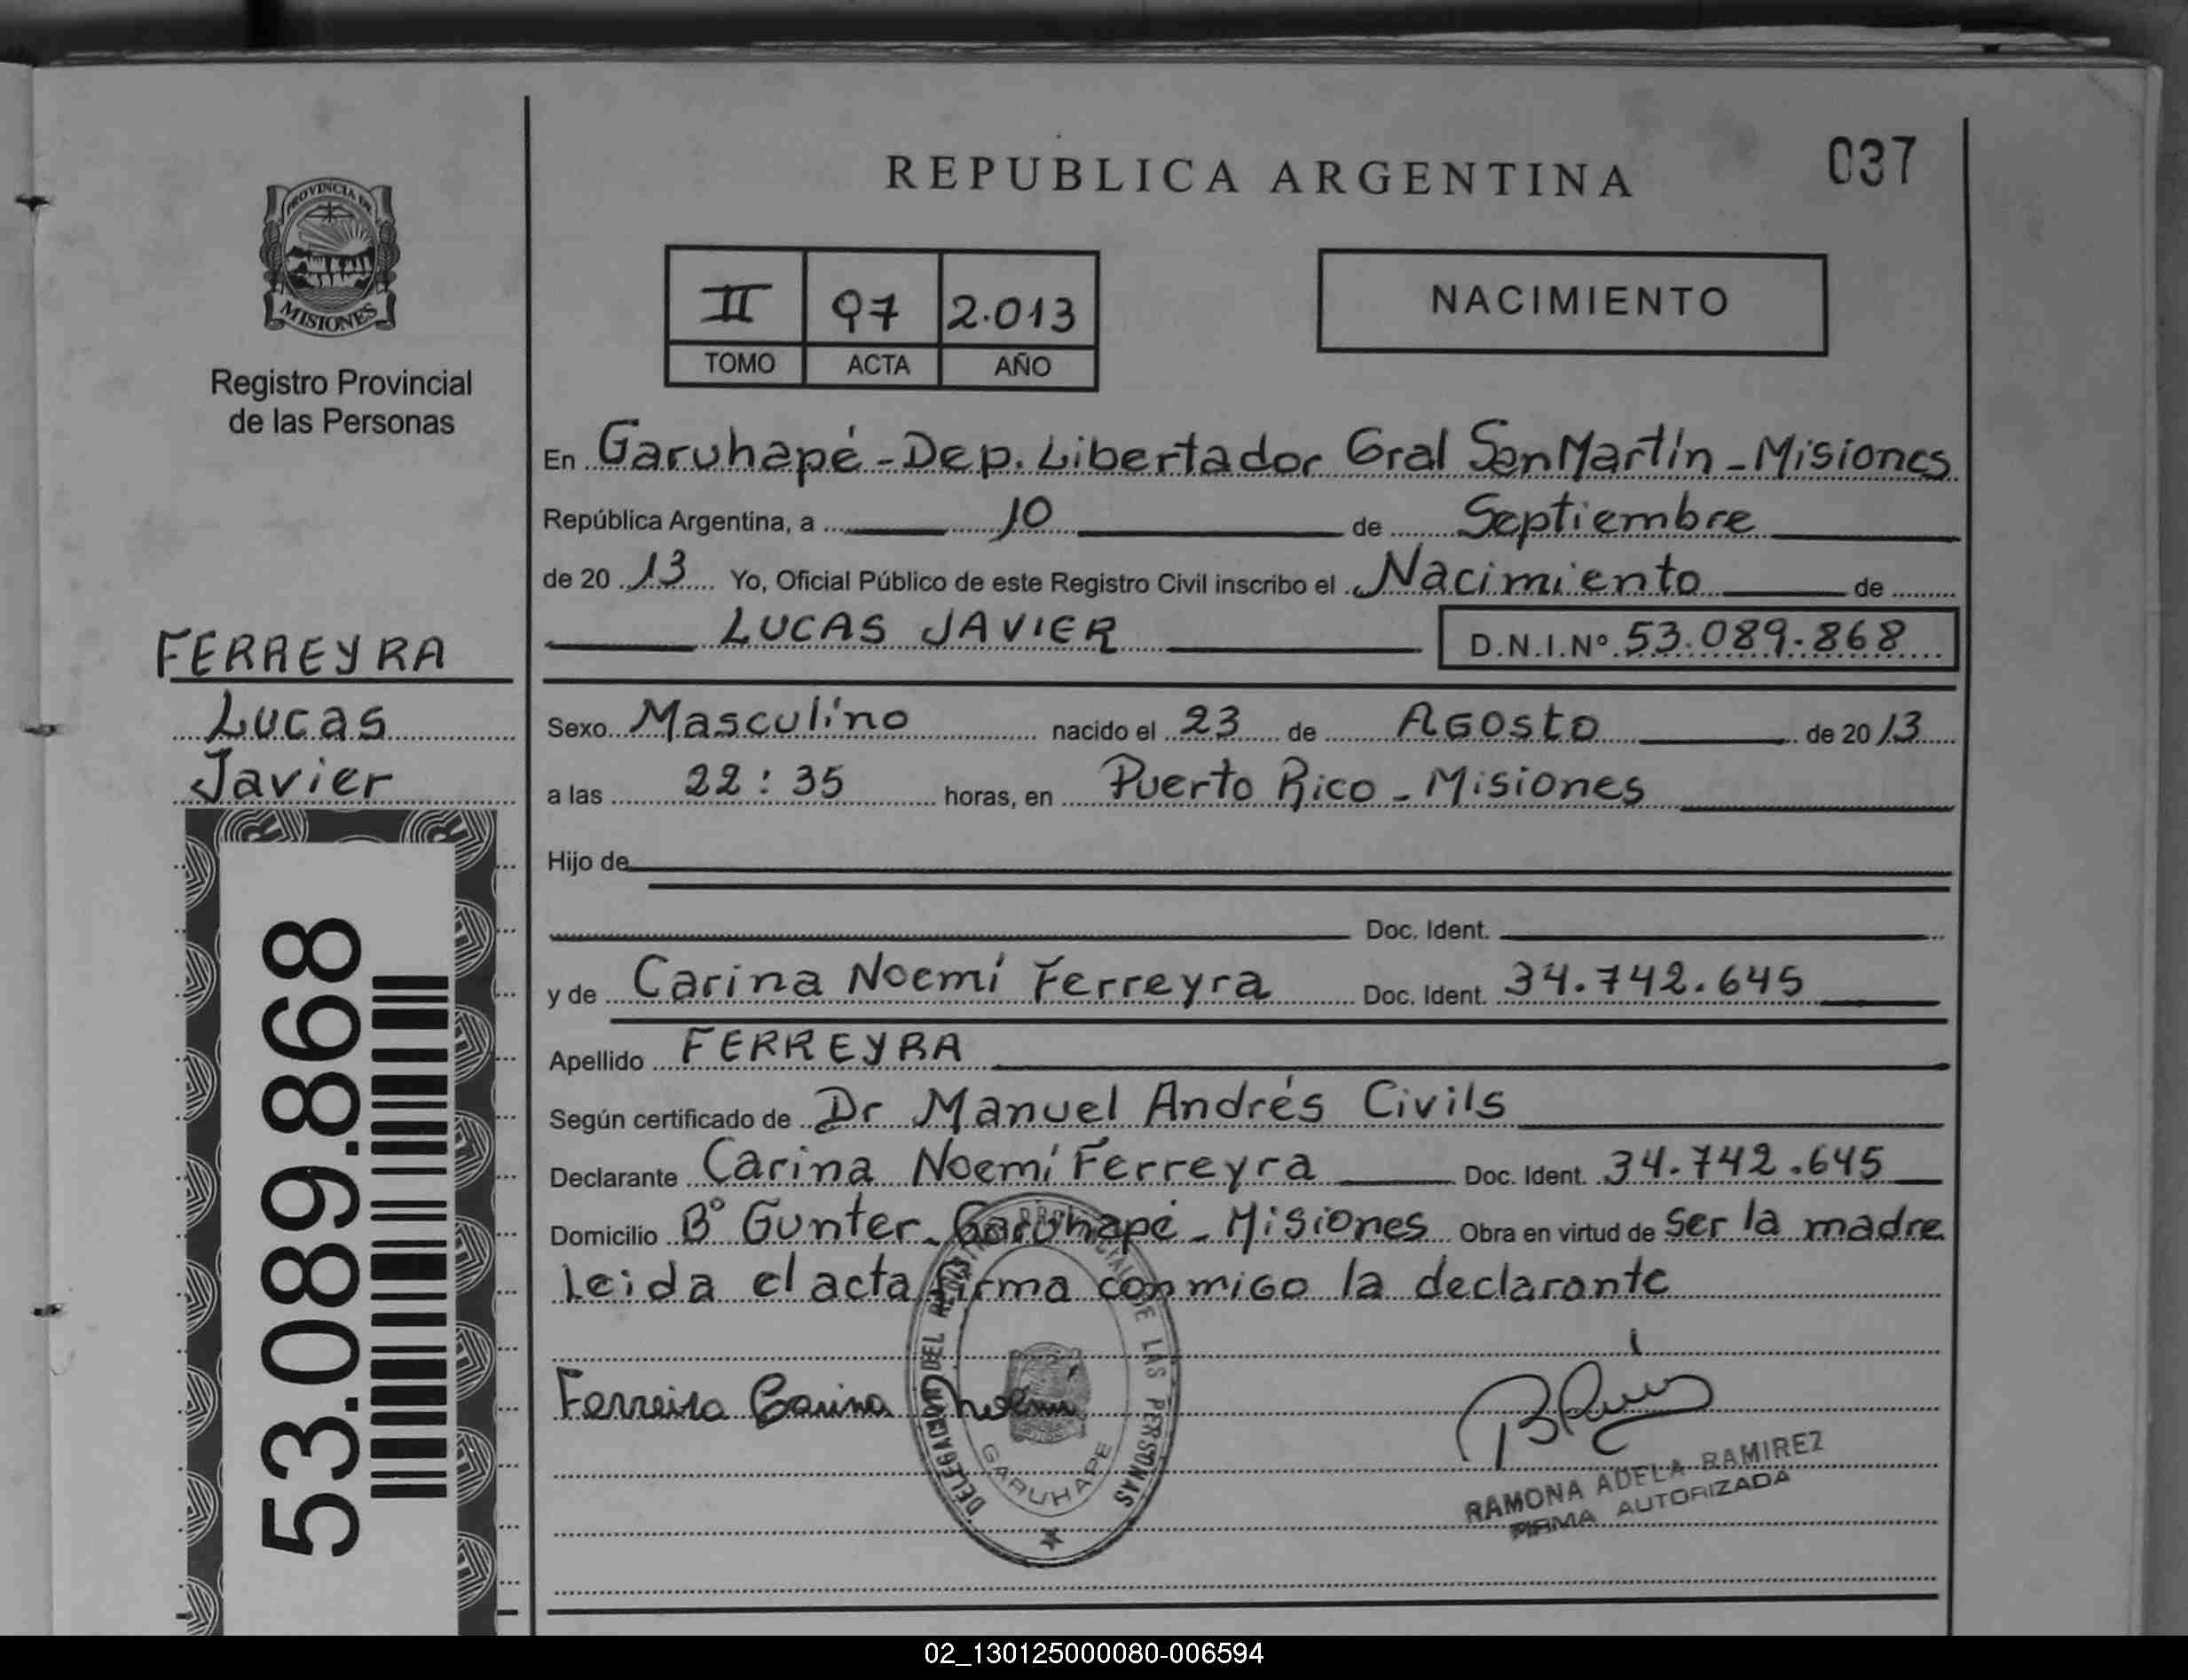 REPUBLICA ARGENTINA
037
PROVINCIA DE
MISIONES
Registro Provincial
de las Personas
II 97 2.013
TOMO ACTA AÑO
NACIMIENTO
En Garuhapé - Dep. Libertador Gral San Martín - Misiones
República Argentina, a 10 de Septiembre
de 20 13 Yo, Oficial Público de este Registro Civil inscribo el Nacimiento de
LUCAS JAVIER D.N.I.Nº 53.089.868
FERREYRA
Lucas
Javier
53.089.868
Sexo Masculino nacido el 23 de AGOSTO de 20 13
a las 22:35 horas, en Puerto Rico - Misiones
Hijo de
Doc. Ident.
y de Carina Noemí Ferreyra Doc. Ident. 34.742.645
Apellido FERREYRA
Según certificado de Dr Manuel Andrés Civils
Declarante Carina Noemí Ferreyra Doc. Ident. 34.742.645
Domicilio Bº Gunter - Garuhapé - Misiones Obra en virtud de ser la madre
Leida el acta firma conmigo la declarante
Ferreira Carina Noemi
DELEGACION DEL REGISTRO PROVINCIAL DE LAS PERSONAS
GARUHAPE
RAMONA ADELA RAMIREZ
FIRMA AUTORIZADA
02_130125000080-006594